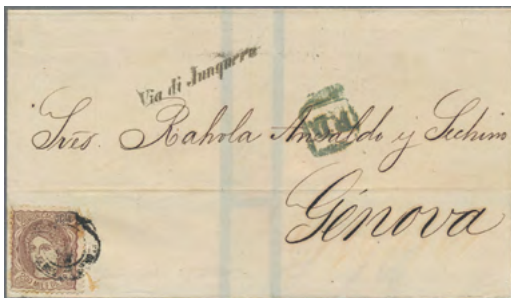 Via di Junquera
P.D.
Sres. Rahola Ansaldo y Sechino
Génova